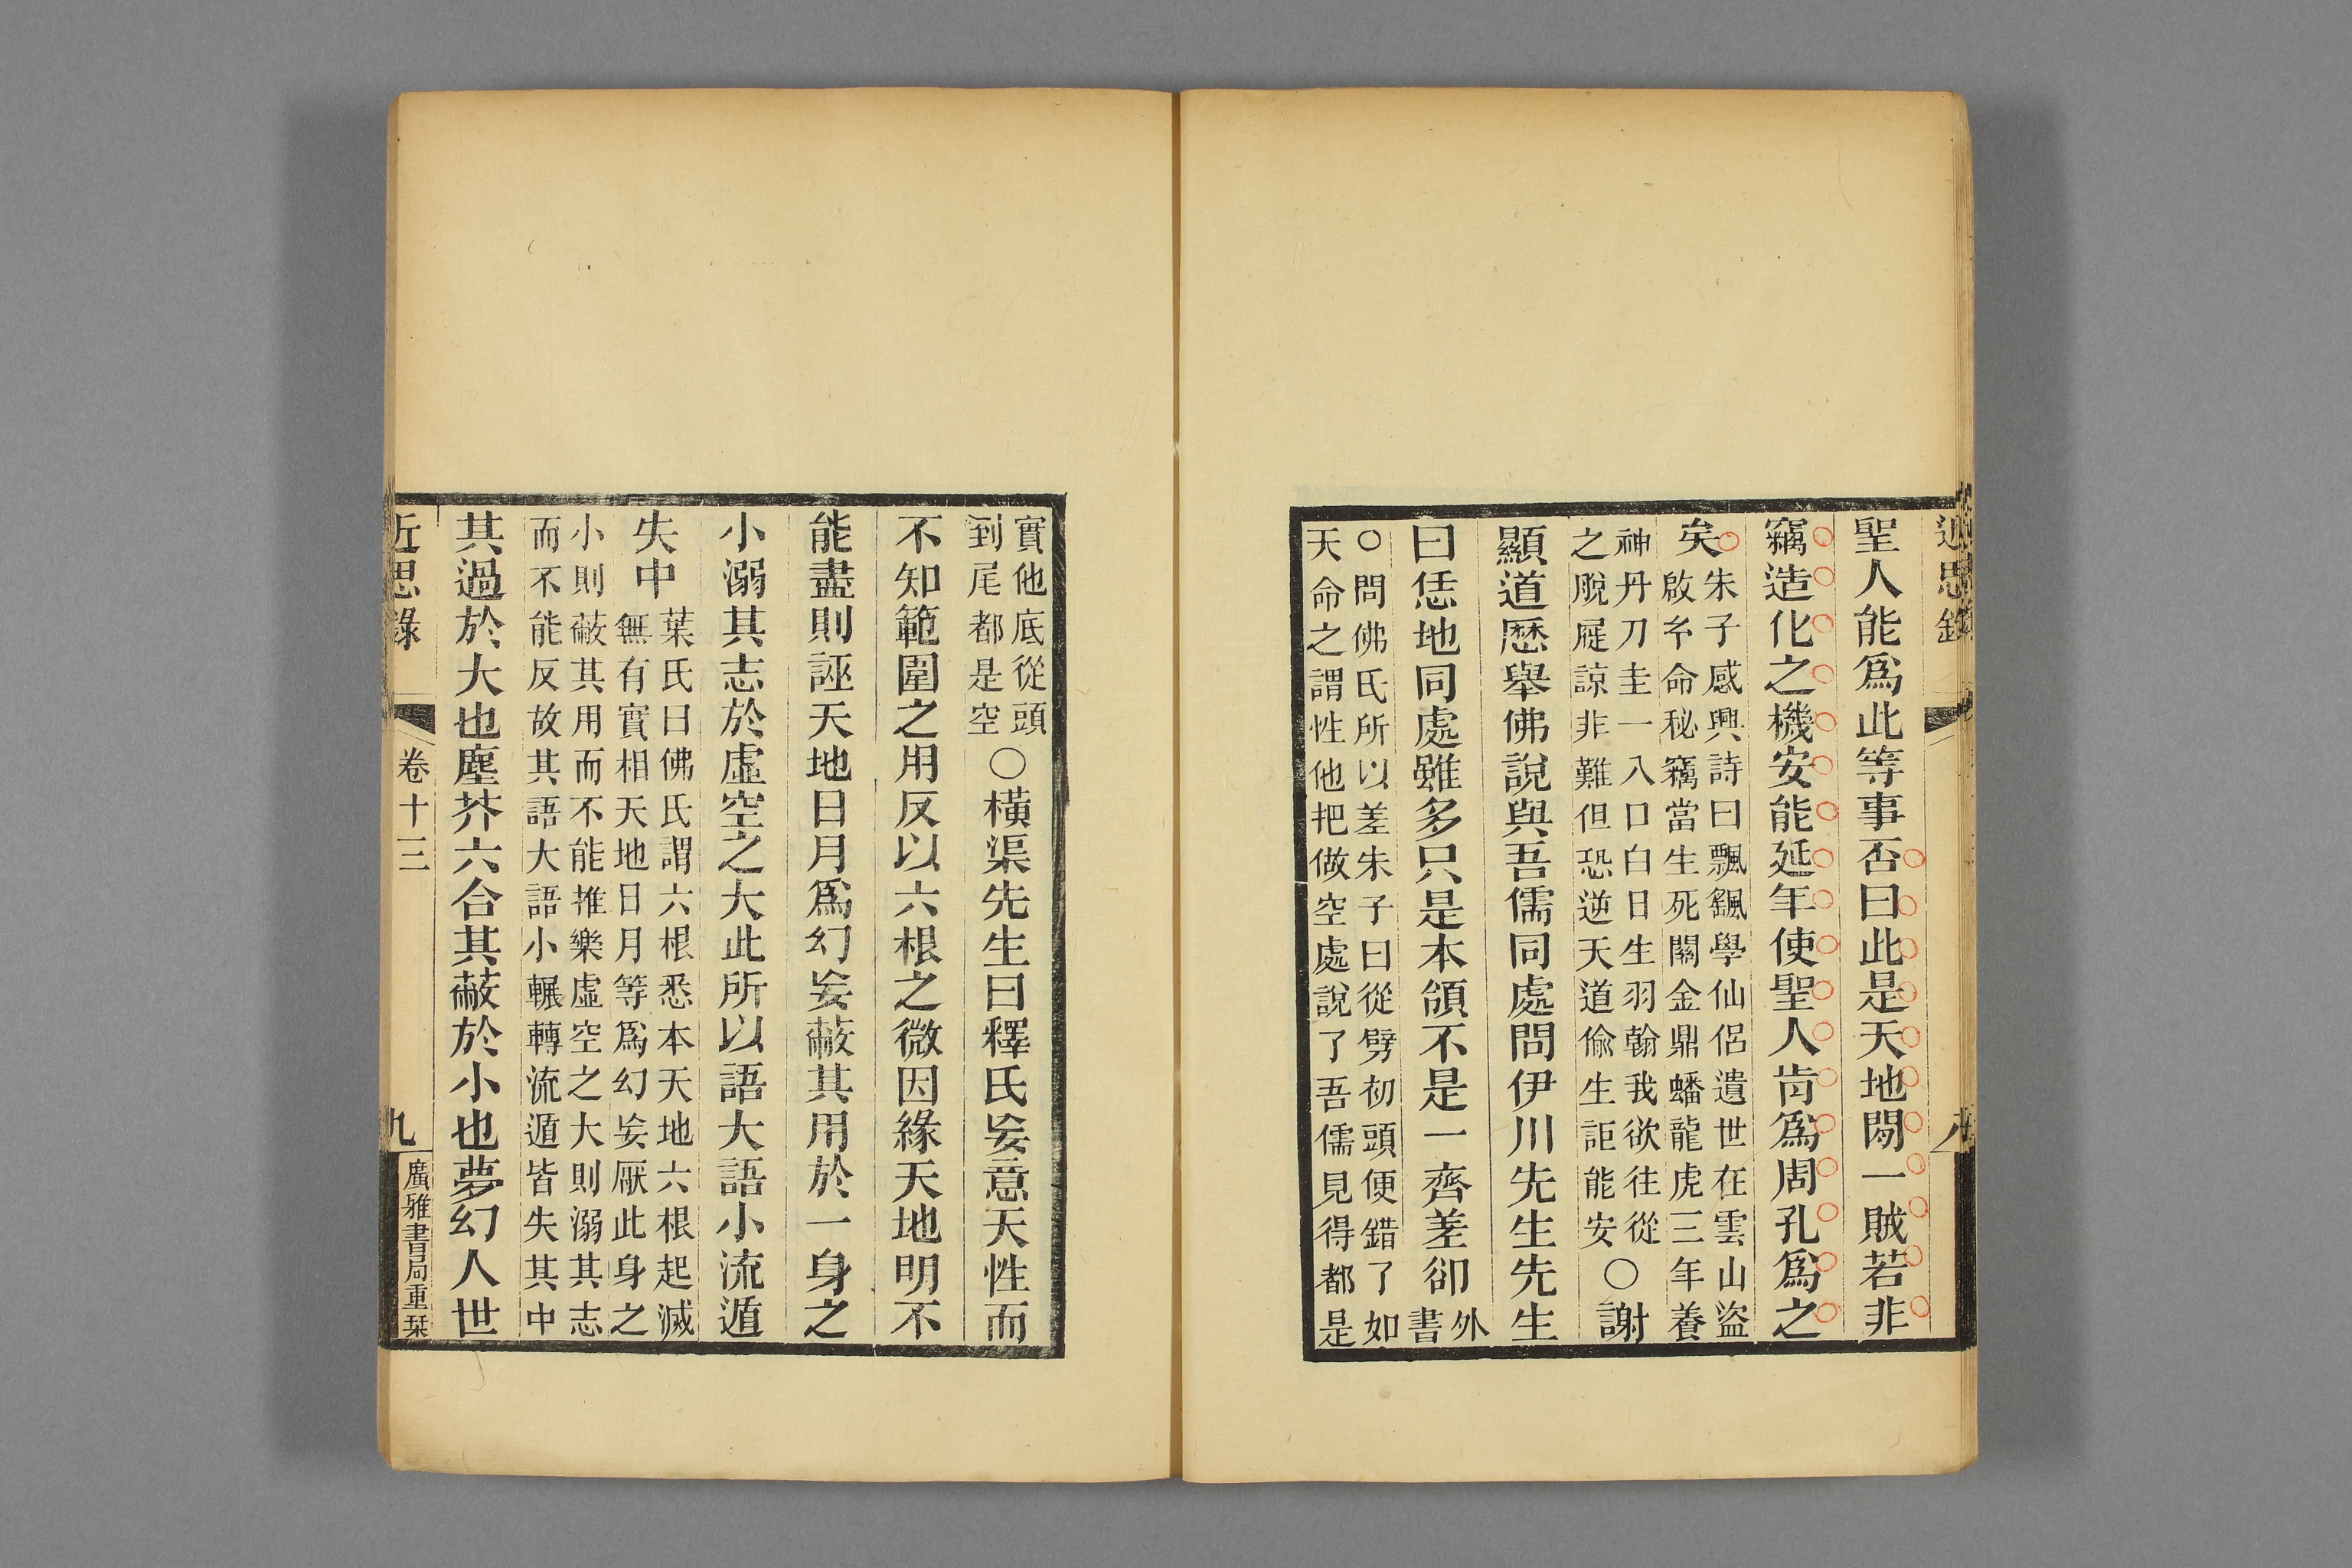 近思錄
聖人能爲此等事否曰此是天地閒一賊若非
竊造化之機安能延年使聖人肯爲周孔爲之
矣
朱子感興詩曰飄飖學仙侶遺世在雲山盜
啟玄命秘竊當生死關金鼎蟠龍虎三年養
神丹刀圭一入口白日生羽翰我欲往從
之脫屣諒非難但恐逆天道偷生詎能安
○謝
顯道歷舉佛說與吾儒同處問伊川先生先生
曰恁地同處雖多只是本領不是一齊差卻
外
書
○問佛氏所以差朱子曰從劈初頭便錯了如
天命之謂性他把做空處說了吾儒見得都是
實他底從頭
到尾都是空
○橫渠先生曰釋氏妄意天性而
不知範圍之用反以六根之微因緣天地明不
能盡則誣天地日月爲幻妄蔽其用於一身之
小溺其志於虛空之大此所以語大語小流遁
失中
葉氏曰佛氏謂六根悉本天地六根起滅
無有實相天地日月等爲幻妄厭此身之
小則蔽其用而不能推樂虛空之大則溺其志
而不能反故其語大語小輾轉流遁皆失其中
其過於大也塵芥六合其蔽於小也夢幻人世
近思錄
卷十三
九
廣雅書局重栞